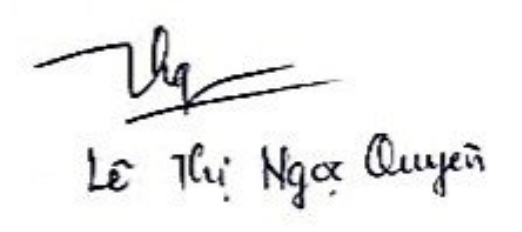 Lê Thị Ngọc Quyên